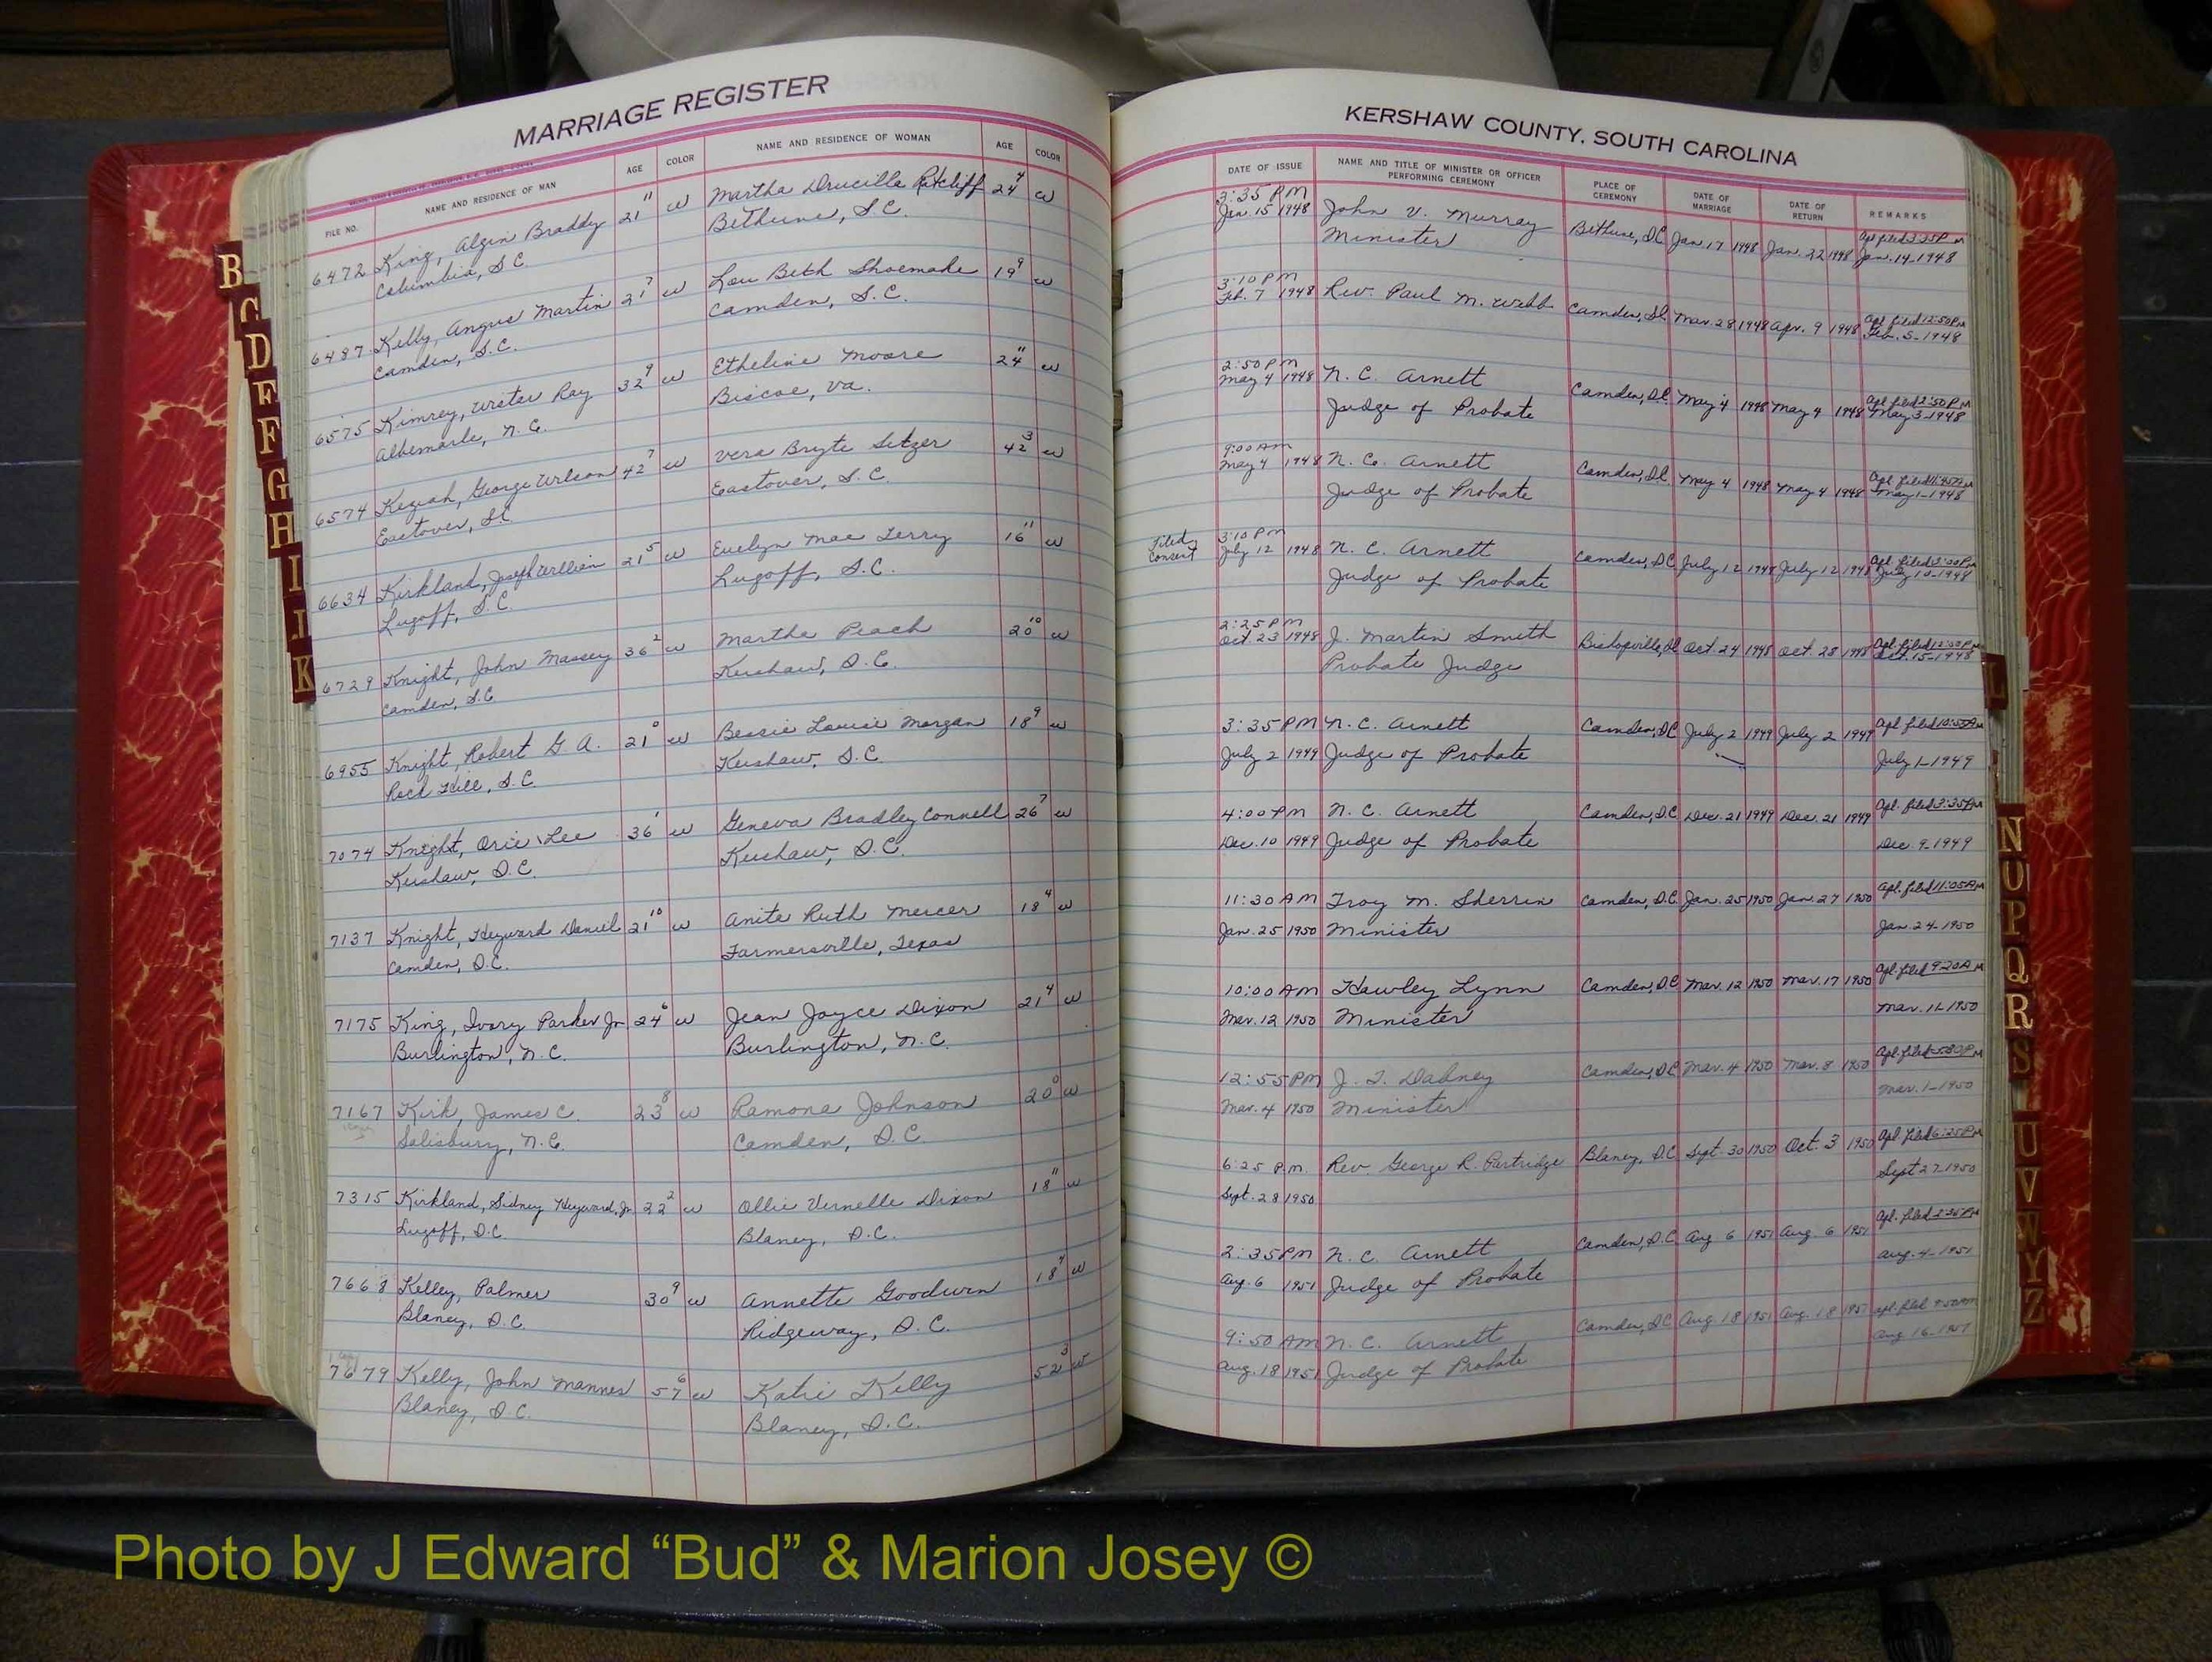 MARRIAGE REGISTER
FILE NO. NAME AND RESIDENCE OF MAN AGE COLOR NAME AND RESIDENCE OF WOMAN AGE COLOR
6472 King, Algin Braddy 21 11 w Martha Drucilla Ratcliff 24 4 w
Columbia, S.C. Bethune, S.C.
6487 Kelly, Angus Martin 21 7 w Lou Beth Shoemake 19 9 w
Camden, S.C. Camden, S.C.
6575 Kimrey, Wister Ray 32 9 w Etheline Moore 24 11 w
Albemarle, N.C. Biscoe, Va.
6574 Keziah, George Wilson 42 7 w Vera Bryte Setzer 42 3 w
Eastover, S.C. Eastover, S.C.
6634 Kirkland, Joseph William 21 5 w Evelyn Mae Terry 16 11 w
Lugoff, S.C. Lugoff, S.C.
6729 Knight, John Massey 36 2 w Martha Peach 20 10 w
Camden, S.C. Kershaw, S.C.
6955 Knight, Robert G. A. 21 0 w Bessie Louise Morgan 18 9 w
Rock Hill, S.C. Kershaw, S.C.
7074 Knight, Orie Lee 36 1 w Geneva Bradley Connell 26 7 w
Kershaw, S.C. Kershaw, S.C.
7137 Knight, Heyward Daniel 21 10 w Anita Ruth Mercer 18 4 w
Camden, S.C. Farmersville, Texas
7175 King, Ivory Parker Jr 24 6 w Jean Joyce Dixon 21 4 w
Burlington, N.C. Burlington, N.C.
7167 Kirk, James C. 23 8 w Ramona Johnson 20 0 w
Salisbury, N.C. Camden, S.C.
7315 Kirkland, Sidney Heyward, Jr. 22 2 w Ollie Vernelle Dixon 18 11 w
Lugoff, S.C. Blaney, S.C.
7668 Kelley, Palmer 30 9 w Annette Goodwin 18 w
Blaney, S.C. Ridgeway, S.C.
7679 Kelly, John Mannes 57 6 w Katie Kelly 52 3 w
Blaney, S.C. Blaney, S.C.
KERSHAW COUNTY, SOUTH CAROLINA
DATE OF ISSUE NAME AND TITLE OF MINISTER OR OFFICER PERFORMING CEREMONY PLACE OF CEREMONY DATE OF MARRIAGE DATE OF RETURN REMARKS
3:35 PM
Jan. 15 1948 John V. Murray Bethune, SC Jan. 17 1948 Jan. 22 1948 Apl filed 3:35 PM
Minister Jan. 14-1948
3:10 PM
Feb. 7 1948 Rev. Paul M. Webb Camden, SC Mar. 28 1948 Apr. 9 1948 Apl filed 12:50 PM
Feb. 5-1948
2:50 PM
May 4 1948 N. C. Arnett Camden, SC May 4 1948 May 4 1948 Apl filed 2:50 PM
Judge of Probate May 3-1948
9:00 AM
May 4 1948 N. C. Arnett Camden, SC May 4 1948 May 4 1948 Apl filed 11:45 AM
Judge of Probate May 1-1948
Filed Consent
3:10 PM
July 12 1948 N. C. Arnett Camden, SC July 12 1948 July 12 1948 Apl. filed
Judge of Probate July 10-1948
2:25 PM
Oct 23 1948 J. Martin Smith Bishopville, SC Oct. 24 1948 Oct. 28 1948 Apl. filed
Probate Judge Oct. 15-1948
3:35 PM N. C. Arnett Camden, SC July 2 1949 July 2 1949 Apl filed
July 2 1949 Judge of Probate July 1-1949
4:00 PM N. C. Arnett Camden, SC Dec. 21 1949 Dec. 21 1949 Apl. filed 3:35 PM
Dec. 10 1949 Judge of Probate Dec. 9-1949
11:30 AM Troy M. Sherrin Camden, S.C. Jan. 25 1950 Jan. 27 1950 Apl. filed 11:05 AM
Jan. 25 1950 Minister Jan. 24-1950
10:00 AM Hawley Lynn Camden, SC Mar. 12 1950 Mar. 17 1950 Apl. filed 9:20 AM
Mar. 12 1950 Minister Mar. 11-1950
12:55 PM J. T. Dabney Camden, SC Mar. 4 1950 Mar. 8 1950 Apl. filed
Mar. 4 1950 Minister Mar. 1-1950
6:25 P.M. Rev. George R. Partridge Blaney, S.C. Sept. 30 1950 Oct. 3 1950 Apl filed 6:25 PM
Sept. 28 1950 Sept 27-1950
2:35 PM N. C. Arnett Camden, S.C. Aug 6 1951 Aug. 6 1951 Apl. filed 2:35 PM
Aug. 6 1951 Judge of Probate Aug. 4-1951
9:50 AM N. C. Arnett Camden, SC Aug. 18 1951 Aug. 18 1951 Apl. filed 9:50 AM
Aug. 18 1951 Judge of Probate Aug 16-1951
B
C
D
E
F
G
H
I
J
K
L
N
O
P
Q
R
S
U
V
W
Y
Z
Photo by J Edward “Bud” & Marion Josey ©